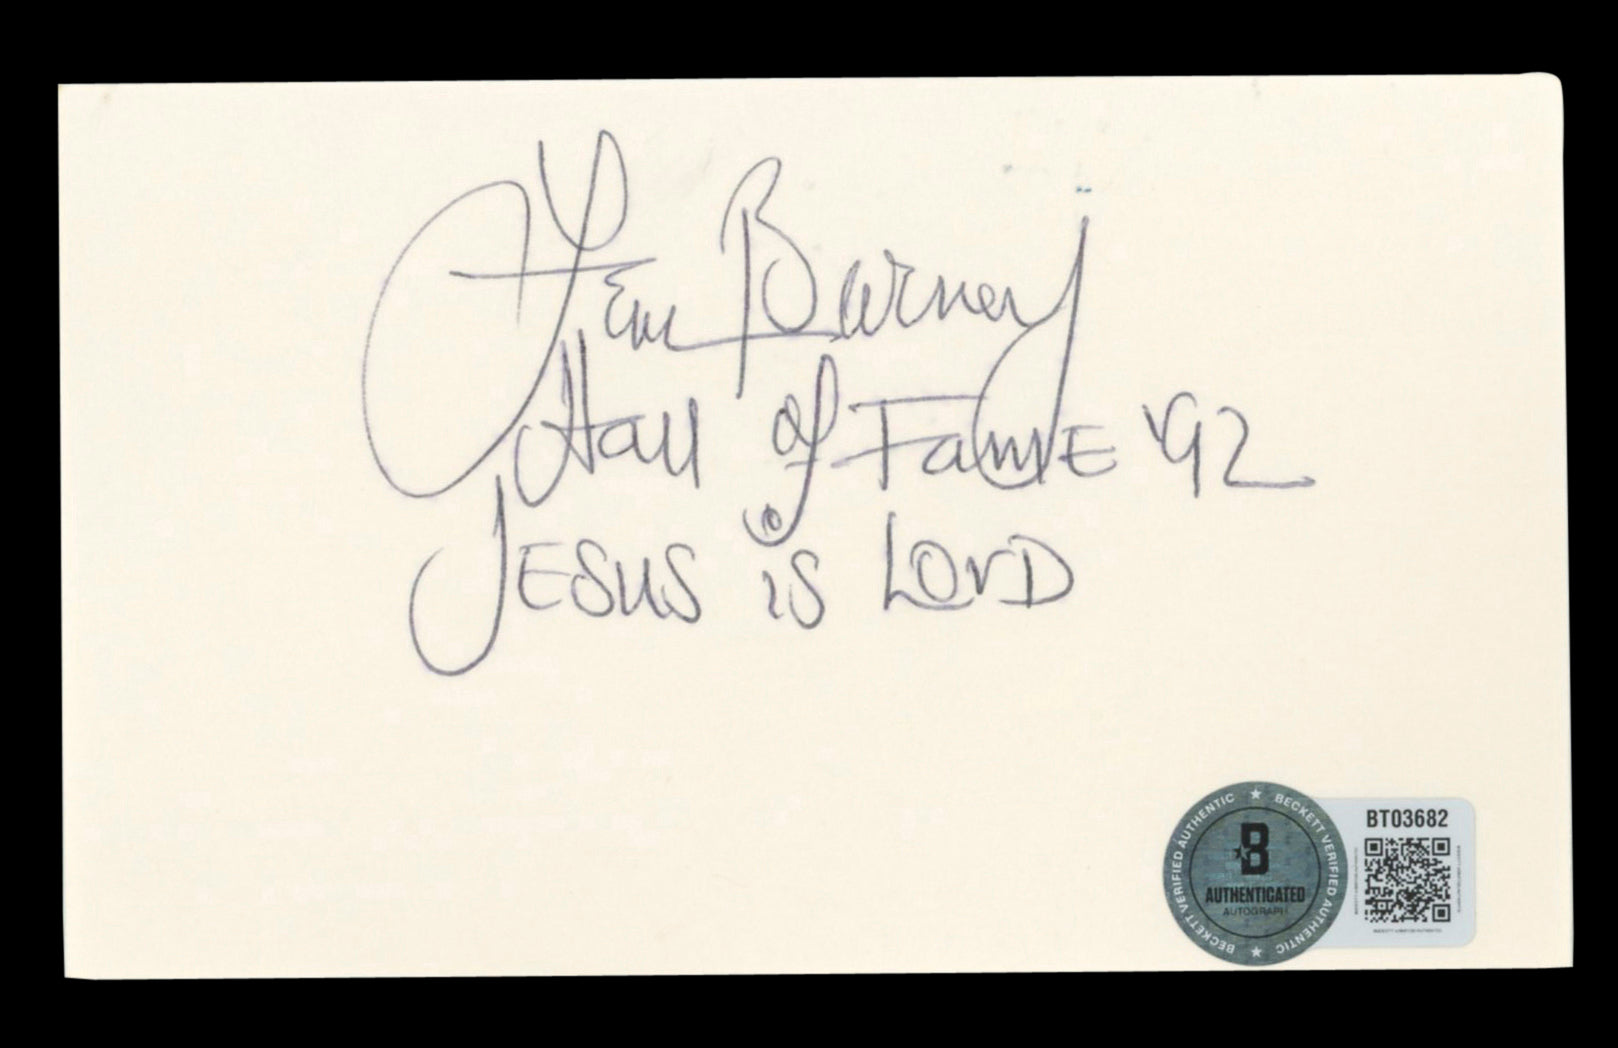 Lem Barney
Hall of FamE '92
JESUS is LOrD
BT03682
BECKETT VERIFIED AUTHENTIC ★ BECKETT VERIFIED AUTHENTIC ★
B
AUTHENTICATED
AUTOGRAPH